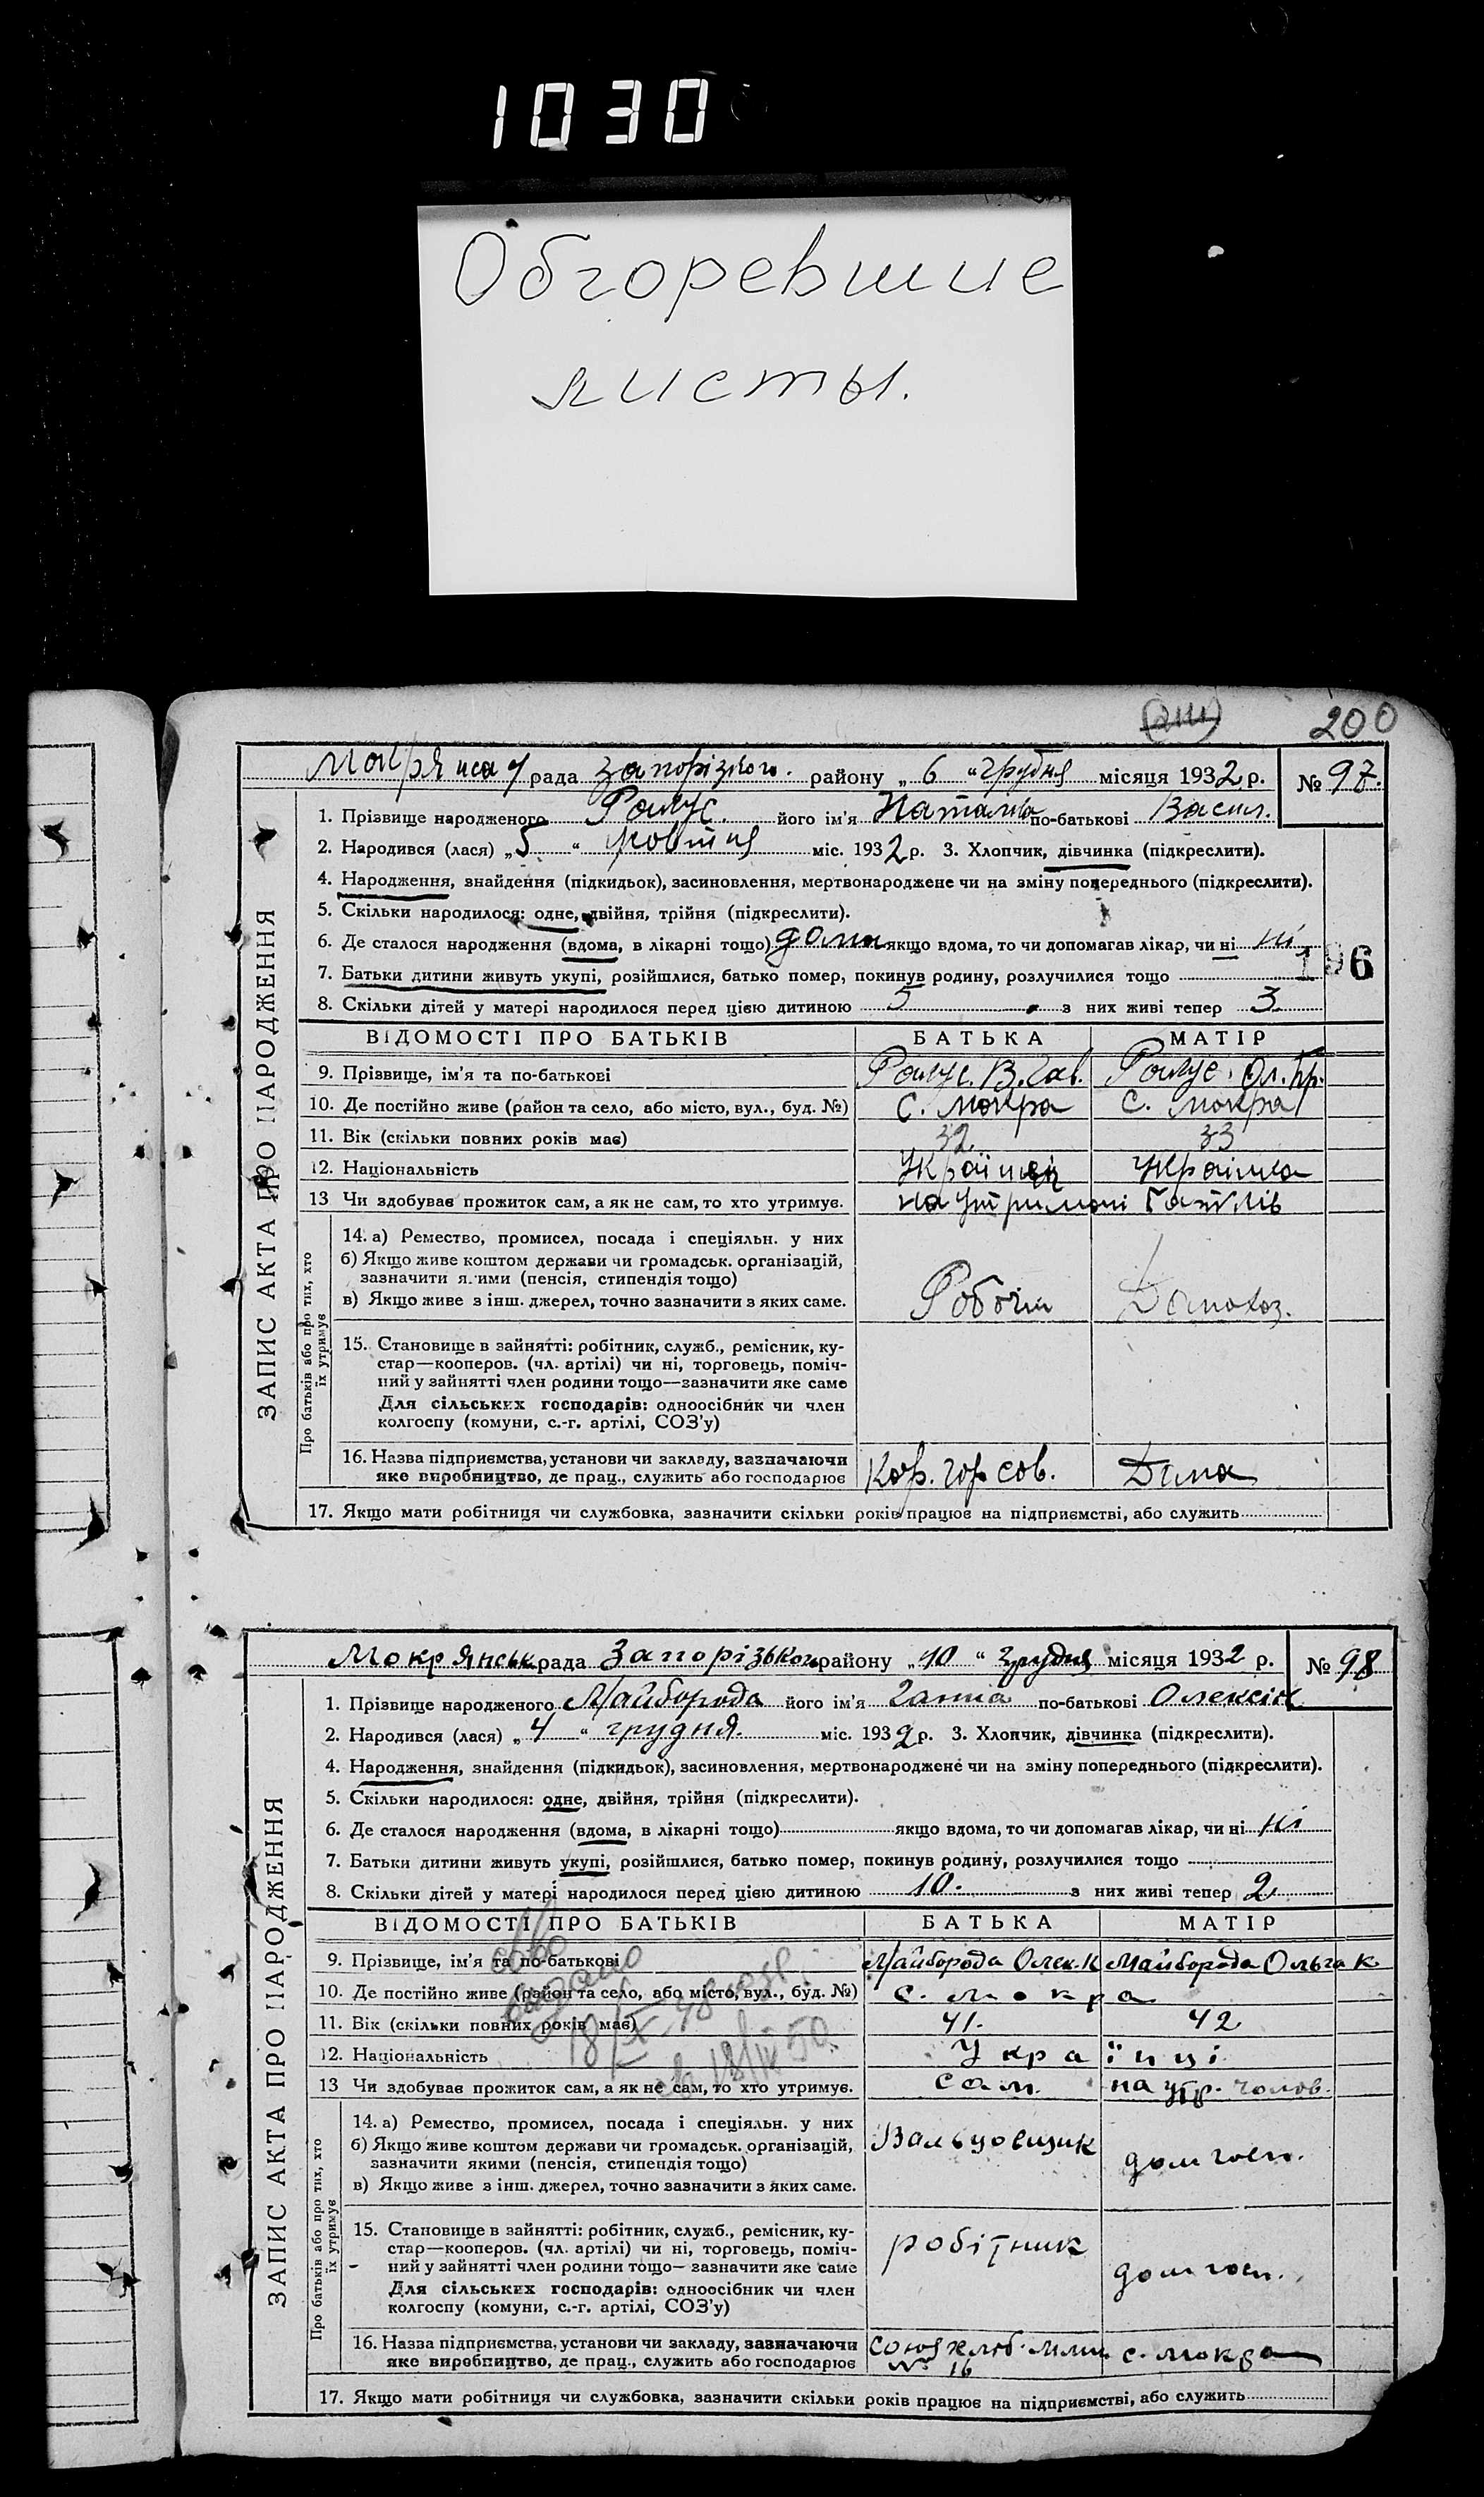 1030
Обгоревшие
листы.
200
рада Запорізького. району „ 6 “ грудня місяця 1932 р. № 97.
1. Прізвище народженого його ім'я Наталія по-батькові Васил.
2. Народився (лася) „ 5 “ жовтня міс. 1932 р. 3. Хлопчик, дівчинка (підкреслити).
4. Народження, знайдення (підкидьок), засиновлення, мертвонароджене чи на зміну попереднього (підкреслити).
5. Скільки народилося: одне, двійня, трійня (підкреслити).
6. Де сталося народження (вдома, в лікарні тощо) дома якщо вдома, то чи допомагав лікар, чи ні ні
196
7. Батьки дитини живуть укупі, розійшлися, батько помер, покинув родину, розлучилися тощо
8. Скільки дітей у матері народилося перед цією дитиною 5 з них живі тепер 3
ВІДОМОСТІ ПРО БАТЬКІВ БАТЬКА МАТІР
9. Прізвище, ім'я та по-батькові
10. Де постійно живе (район та село, або місто, вул., буд. №) с. Мокра с. Мокра
11. Вік (скільки повних років має) 32 33
12. Національність Українець Українка
13 Чи здобуває прожиток сам, а як не сам, то хто утримує. на утримані батьків
14. а) Ремество, промисел, посада і спеціяльн. у них
б) Якщо живе коштом держави чи громадськ. організацій,
зазначити якими (пенсія, стипендія тощо)
в) Якщо живе з інш. джерел, точно зазначити з яких саме. Робочи Домохоз.
15. Становище в зайнятті: робітник, служб., ремісник, ку-
стар—кооперов. (чл. артілі) чи ні, торговець, поміч-
ний у зайнятті член родини тощо—зазначити яке саме
Для сільських господарів: одноосібник чи член
колгоспу (комуни, с.-г. артілі, СОЗ'у)
16. Назва підприємства, установи чи закладу, зазначаючи
яке виробництво, де прац., служить або господарює Дома
17. Якщо мати робітниця чи службовка, зазначити скільки років працює на підприємстві, або служить
ЗАПИС АКТА ПРО НАРОДЖЕННЯ
Про батьків або про тих, хто
їх утримує
Мокрянськ рада Запорізьког району „ 10 “ грудня місяця 1932 р. № 98
1. Прізвище народженого Майборода його ім'я Ганна по-батькові Олексіїв
2. Народився (лася) „ 4 “ грудня. міс. 1932 р. 3. Хлопчик, дівчинка (підкреслити).
4. Народження, знайдення (підкидьок), засиновлення, мертвонароджене чи на зміну попереднього (підкреслити).
5. Скільки народилося: одне, двійня, трійня (підкреслити).
6. Де сталося народження (вдома, в лікарні тощо) якщо вдома, то чи допомагав лікар, чи ні ні
7. Батьки дитини живуть укупі, розійшлися, батько помер, покинув родину, розлучилися тощо
8. Скільки дітей у матері народилося перед цією дитиною 10. з них живі тепер 2
ВІДОМОСТІ ПРО БАТЬКІВ БАТЬКА МАТІР
9. Прізвище, ім'я та по-батькові Майборода Олек. К Майборода Ольга К
10. Де постійно живе (район та село, або місто, вул., буд. №) с. Мокра
11. Вік (скільки повних років має) 41. 42
12. Національність Українці
13 Чи здобуває прожиток сам, а як не сам, то хто утримує. сам. на утр. чолов.
14. а) Ремество, промисел, посада і спеціяльн. у них
б) Якщо живе коштом держави чи громадськ. організацій,
зазначити якими (пенсія, стипендія тощо) Вальцовщик дом госп.
в) Якщо живе з інш. джерел, точно зазначити з яких саме.
15. Становище в зайнятті: робітник, служб., ремісник, ку-
стар—кооперов. (чл. артілі) чи ні, торговець, поміч- робітник
ний у зайнятті член родини тощо—зазначити яке саме дом госп.
Для сільських господарів: одноосібник чи член
колгоспу (комуни, с.-г. артілі, СОЗ'у)
16. Назва підприємства, установи чи закладу, зазначаючи с. Мокра
яке виробництво, де прац., служить або господарює № 16
17. Якщо мати робітниця чи службовка, зазначити скільки років працює на підприємстві, або служить
ЗАПИС АКТА ПРО НАРОДЖЕННЯ
Про батьків або про тих, хто
їх утримує